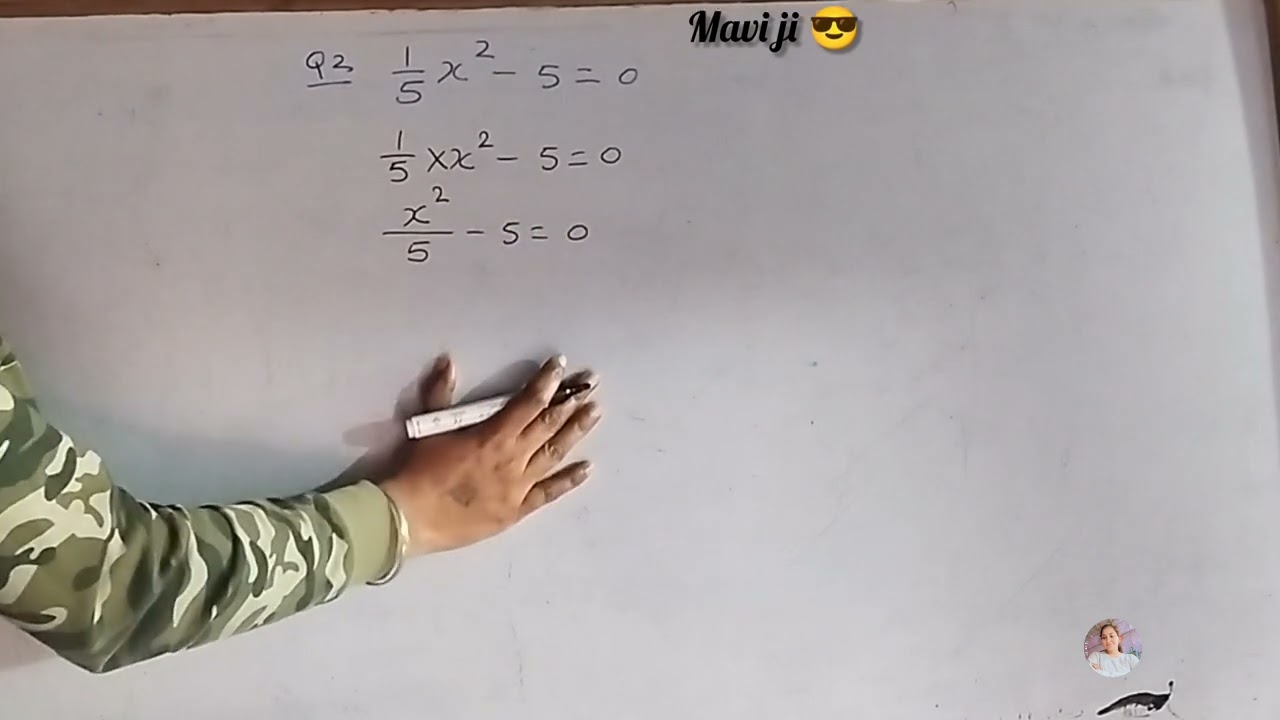 Mavi ji 😎
Q2 1/5 x² - 5 = 0
1/5 × x² - 5 = 0
x²/5 - 5 = 0